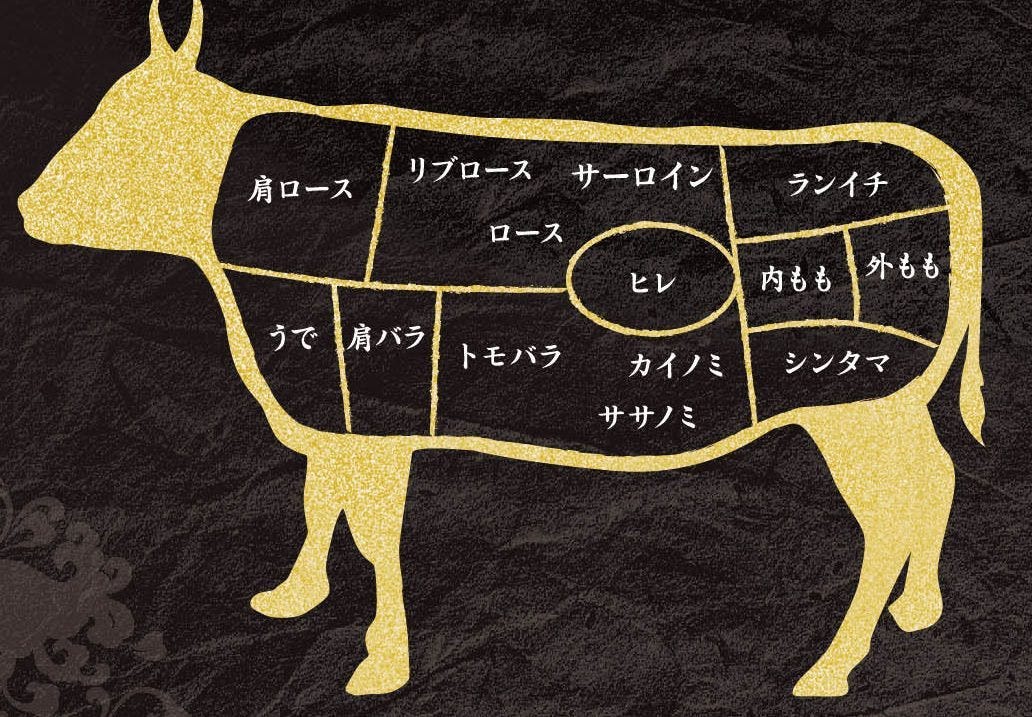 肩ロース
リブロース
サーロイン
ロース
ランイチ
ヒレ
内もも
外もも
うで
肩バラ
トモバラ
カイノミ
ササノミ
シンタマ